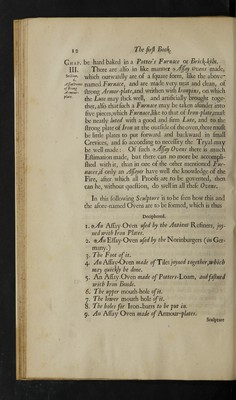 12 The first Book,
CHAP. III.
Section. 6.
Assay-ovens of strong Armour-plate.
be hard baked in a Potter's Furnace or Brick-kiln.
There are also in like manner Assay Ovens made,
which outwardly are of a square form, like the above-
named Furnace, and are made very neat and clean, of
strong Armor-plate, and written with Iron pins, on which
the Lute may stick well, and artificially brought toge-
ther, also that such a Furnace may be taken asunder into
five pieces, which Furnace, like to that of Iron-plate, must
be neatly luted with a good and firm Lute, and to the
strong plate of Iron at the outside of the oven, there must
be little plates to put forward and backward in small
Crevices, and so according to necessity the Tryal may
be well made: Of such Assay Ovens there is much
Estimation made, but there can no more be accomp-
lished with it, than in one of the other mentioned Fur-
naces, if only an Assayer have well the knowledge of the
Fire, after which all Proofs are to be governed, then
can he, without question, do well in all these Ovens.
In this following Sculpture is to be seen how this and
the afore-named Ovens are to be formed, which is thus
Deciphered.
1. An Assay Oven used by the Antient Refiners, joy-
ned with Iron Plates.
2. An Essay Oven used by the Norinburgers (in Ger-
many.)
3. The Foot of it.
4. An Assay-Oven made of Tiles joyned together, which
may quickly be done.
5. An Assay Oven made of Potters-Loam, and fastned
with Iron Bonds.
6. The upper mouth-hole of it.
7. The lower mouth hole of it.
8. The holes for Iron-barrs to be put in.
9. An Assay Oven made of Armour-plates.
Sculpture